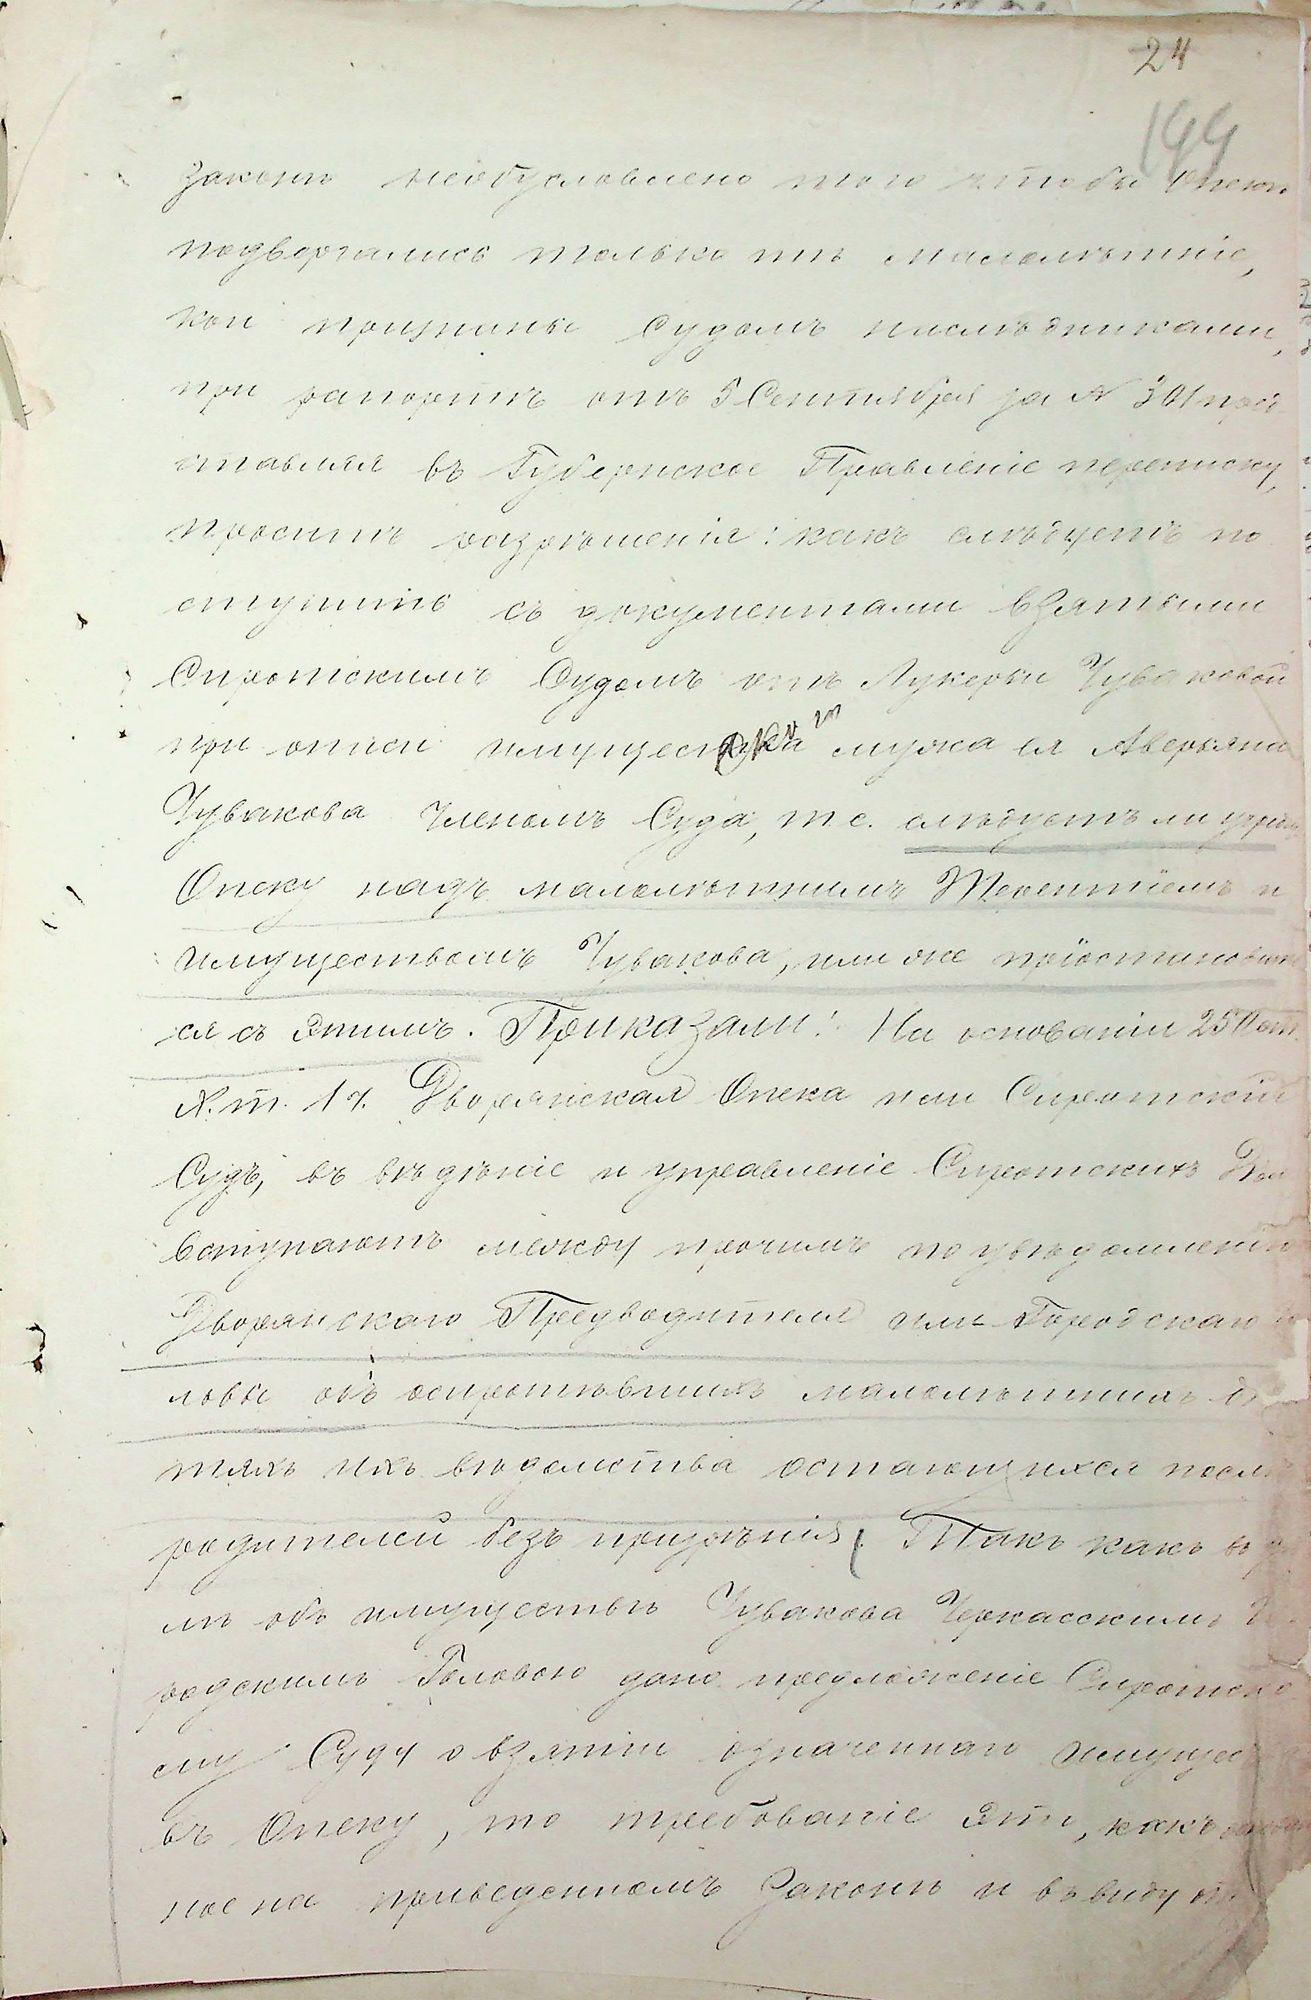 24
199
законъ необусловлено того чтобы Опекѣ
подвергались только тѣ малолѣтніе,
кои признаны Судомъ наслѣдниками,
при рапортѣ отъ 5 Сентября за N 301 пред
ставляя въ Губернское Правленіе переписку,
проситъ разрѣшенія: какъ слѣдуетъ по
ступить съ документами взятыми
Сиротскимъ Судомъ отъ Лукерьи Чуваковой
при описи имущества мужа ея Аверьяна
Чувакова Членомъ Суда, т. е. слѣдуетъ ли учредить
Опеку надъ малолѣтнимъ Терентіемъ и
имуществомъ Чувакова, или же пріостановить
ся съ этимъ. Приказали: На основаніи 250 ст.
X. т. 1 ч. Дворянская Опека или Сиротскій
Судъ, въ вѣдѣніе и управленіе Сиротскихъ
вступаютъ между прочимъ по увѣдомленію
Дворянскаго Предводителя или Городскаго Го
ловы объ осиротѣвшихъ малолѣтнихъ дѣ
тяхъ ихъ вѣдомства остающихся послѣ
родителей безъ призрѣнія. Такъ какъ въ дѣ
лѣ объ имуществѣ Чувакова Черкасскимъ Го
родскимъ Головою дано предложеніе Сиротско
му Суду о взятіи означеннаго имущества
въ Опеку, то требованіе это, какъ основан
ное на приведенномъ Законѣ и въ виду